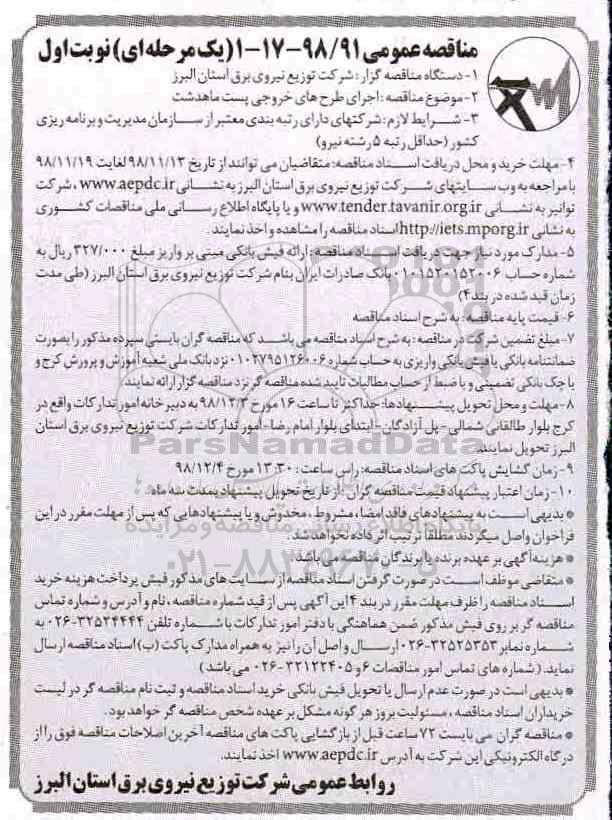 مناقصه عمومی ۹۸/۹۱-۱۷-۱ (یک مرحله ای) نوبت اول
۱- دستگاه مناقصه گزار: شرکت توزیع نیروی برق استان البرز
۲- موضوع مناقصه: اجرای طرح های خروجی پست ماهدشت
۳- شرایط لازم: شرکتهای دارای رتبه بندی معتبر از سازمان مدیریت و برنامه ریزی
کشور (حداقل رتبه ۵ رشته نیرو)
۴- مهلت خرید و محل دریافت اسناد مناقصه: متقاضیان می توانند از تاریخ ۹۸/۱۱/۱۳ لغایت ۹۸/۱۱/۱۹
با مراجعه به وب سایتهای شرکت توزیع نیروی برق استان البرز به نشانی www.aepdc.ir، شرکت
توانیر به نشانی www.tender.tavanir.org.ir و یا پایگاه اطلاع رسانی ملی مناقصات کشوری
به نشانی http://iets.mporg.ir اسناد مناقصه را مشاهده و اخذ نمایند.
۵- مدارک مورد نیاز جهت دریافت اسناد مناقصه: ارائه فیش بانکی مبنی بر واریز مبلغ ۳۲۷/۰۰۰ ریال به
شماره حساب ۰۱۰۱۵۲۰۱۵۲۰۰۶ بانک صادرات ایران بنام شرکت توزیع نیروی برق استان البرز (طی مدت
زمان قید شده در بند ۴)
۶- قیمت پایه مناقصه: به شرح اسناد مناقصه
۷- مبلغ تضمین شرکت در مناقصه: به شرح اسناد مناقصه می باشد که مناقصه گران بایستی سپرده مذکور را بصورت
ضمانتنامه بانکی یا فیش بانکی واریزی به حساب شماره ۰۱۰۲۷۹۵۱۲۶۰۰۶ نزد بانک ملی شعبه آموزش و پرورش کرج و
یا چک بانکی تضمینی و یا ضبط از حساب مطالبات تایید شده مناقصه گر نزد مناقصه گزار ارائه نمایند.
۸- مهلت و محل تحویل پیشنهادها: حداکثر تا ساعت ۱۶ مورخ ۹۸/۱۲/۳ به دبیر خانه امور تدارکات واقع در
کرج بلوار طالقانی شمالی - پل آزادگان - ابتدای بلوار امام رضا - امور تدارکات شرکت توزیع نیروی برق استان
البرز تحویل نمایند.
۹- زمان گشایش پاکت های اسناد مناقصه: راس ساعت: ۱۳:۳۰ مورخ ۹۸/۱۲/۴
۱۰- زمان اعتبار پیشنهاد قیمت مناقصه گران: از تاریخ تحویل پیشنهاد بمدت سه ماه.
* بدیهی است به پیشنهادهای فاقد امضاء، مشروط، مخدوش و یا پیشنهادهایی که پس از مهلت مقرر در این
فراخوان واصل میگردند مطلقا ترتیب اثر داده نخواهد شد.
* هزینه آگهی بر عهده برنده یا برندگان مناقصه می باشد.
* متقاضی موظف است در صورت گرفتن اسناد مناقصه از سایت های مذکور فیش پرداخت هزینه خرید
اسناد مناقصه را ظرف مهلت مقرر در بند ۴ این آگهی پس از قید شماره مناقصه، نام و آدرس و شماره تماس
مناقصه گر بر روی فیش مذکور ضمن هماهنگی با دفتر امور تدارکات با شماره تلفن ۳۲۵۲۴۴۴۴-۰۲۶ به
شماره نمابر ۳۲۵۲۵۳۵۳-۰۲۶ ارسال و اصل آن را نیز به همراه مدارک پاکت (ب) اسناد مناقصه ارسال
نماید. (شماره های تماس امور مناقصات ۶ و ۳۲۱۲۲۴۰۵-۰۲۶ می باشد)
* بدیهی است در صورت عدم ارسال یا تحویل فیش بانکی خرید اسناد مناقصه و ثبت نام مناقصه گر در لیست
خریداران اسناد مناقصه، مسئولیت بروز هر گونه مشکل بر عهده شخص مناقصه گر خواهد بود.
* مناقصه گران می بایست ۷۲ ساعت قبل از بازگشایی پاکت های مناقصه آخرین اصلاحات مناقصه فوق را از
درگاه الکترونیکی این شرکت به آدرس www.aepdc.ir اخذ نمایند.
روابط عمومی شرکت توزیع نیروی برق استان البرز
ParsNamadData
پایگاه اطلاع رسانی مناقصه و مزایده